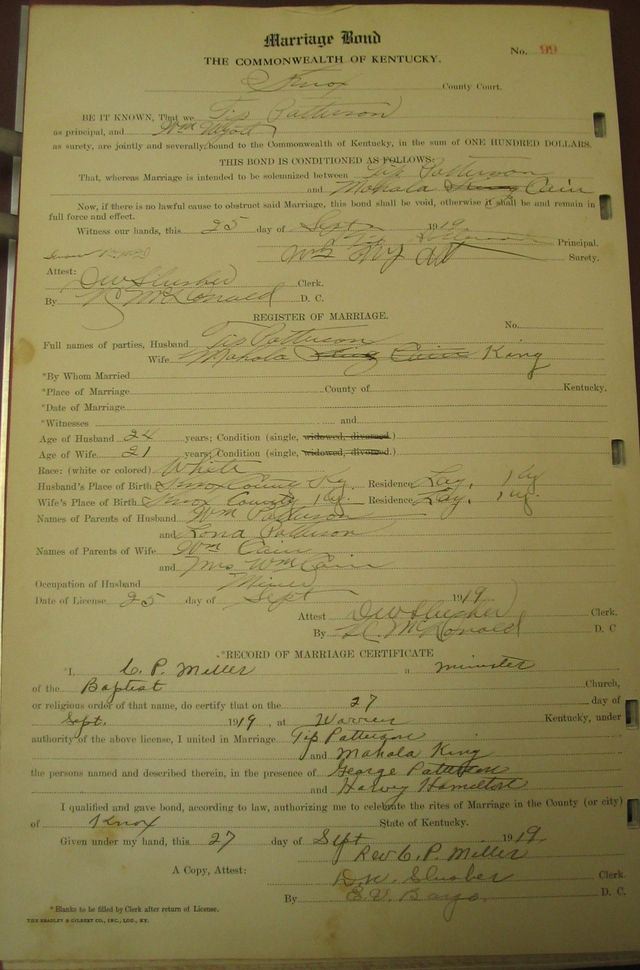 Marriage Bond
No. 99
THE COMMONWEALTH OF KENTUCKY.
Knox County Court.
BE IT KNOWN, That we Tip Patterson
as principal, and Wm Wyatt
as surety, are jointly and severally bound to the Commonwealth of Kentucky, in the sum of ONE HUNDRED DOLLARS.
THIS BOND IS CONDITIONED AS FOLLOWS:
That, whereas Marriage is intended to be solemnized between Tip Patterson
and Mahala King Cain
Now, if there is no lawful cause to obstruct said Marriage, this bond shall be void, otherwise it shall be and remain in
full force and effect.
Witness our hands, this 25 day of Sept 1919
Tip Patterson Principal.
Wm Wyatt Surety.
Attest:
D W Slusher Clerk.
By McDonald D. C.
REGISTER OF MARRIAGE.
No.
Full names of parties, Husband Tip Patterson
Wife Mahala King Cain King
*By Whom Married
*Place of Marriage County of Kentucky.
*Date of Marriage
*Witnesses and
Age of Husband 24 years; Condition (single, widowed, divorced.)
Age of Wife 21 years; Condition (single, widowed, divorced.)
Race: (white or colored) White
Husband's Place of Birth Knox County Ky. Residence Lay, Ky
Wife's Place of Birth Knox County Ky. Residence Lay, Ky.
Names of Parents of Husband Wm Patterson
and Patterson
Names of Parents of Wife Wm Cain
and Mrs Wm Cain
Occupation of Husband Miner
Date of License 25 day of Sept 1919
Attest D W Slusher Clerk.
By McDonald D. C
*RECORD OF MARRIAGE CERTIFICATE
*I, C. P. Miller a minister
of the Baptist Church,
or religious order of that name, do certify that on the 27 day of
Sept. 1919, at Warren Kentucky, under
authority of the above license, I united in Marriage Tip Patterson
and Mahala King
the persons named and described therein, in the presence of George Patterson
and Harvy Hamelton
I qualified and gave bond, according to law, authorizing me to celebrate the rites of Marriage in the County (or city)
of Knox State of Kentucky.
Given under my hand, this 27 day of Sept 1919.
Rev C. P. Miller
A Copy, Attest: D. W. Slusher Clerk.
By E. V. Bargo D. C.
*Blanks to be filled by Clerk after return of License.
THE BRADLEY & GILBERT CO., INC., LOU., KY.